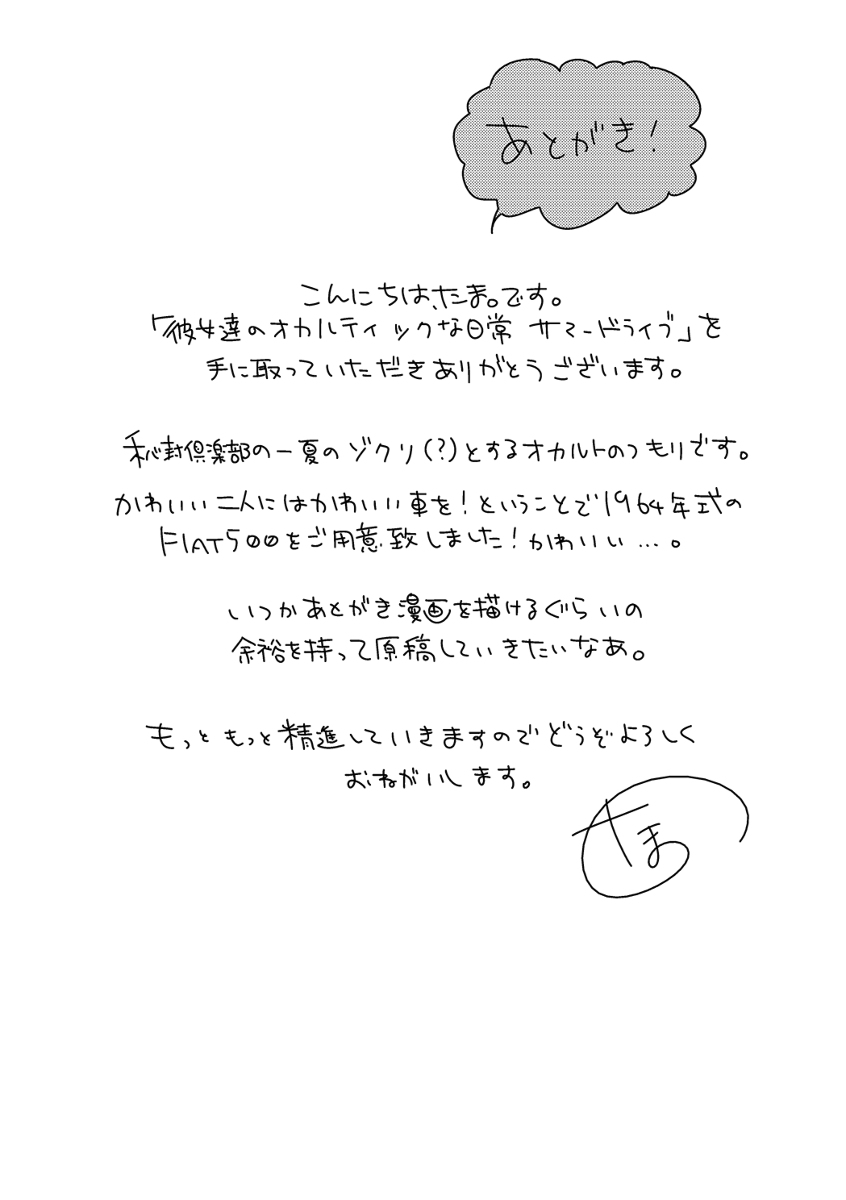 あとがき!
こんにちは、たま。です。
「彼女達のオカルティックな日常 サマードライブ」を
手に取っていただきありがとうございます。
秘封倶楽部の一夏のゾクリ(?)とするオカルトのつもりです。
かわいい二人にはかわいい車を!ということで1964年式の
FIAT500をご用意致しました!かわいい…。
いつかあとがき漫画を描けるぐらいの
余裕を持って原稿していきたいなあ。
もっともっと精進していきますのでどうぞよろしく
おねがいします。
たま